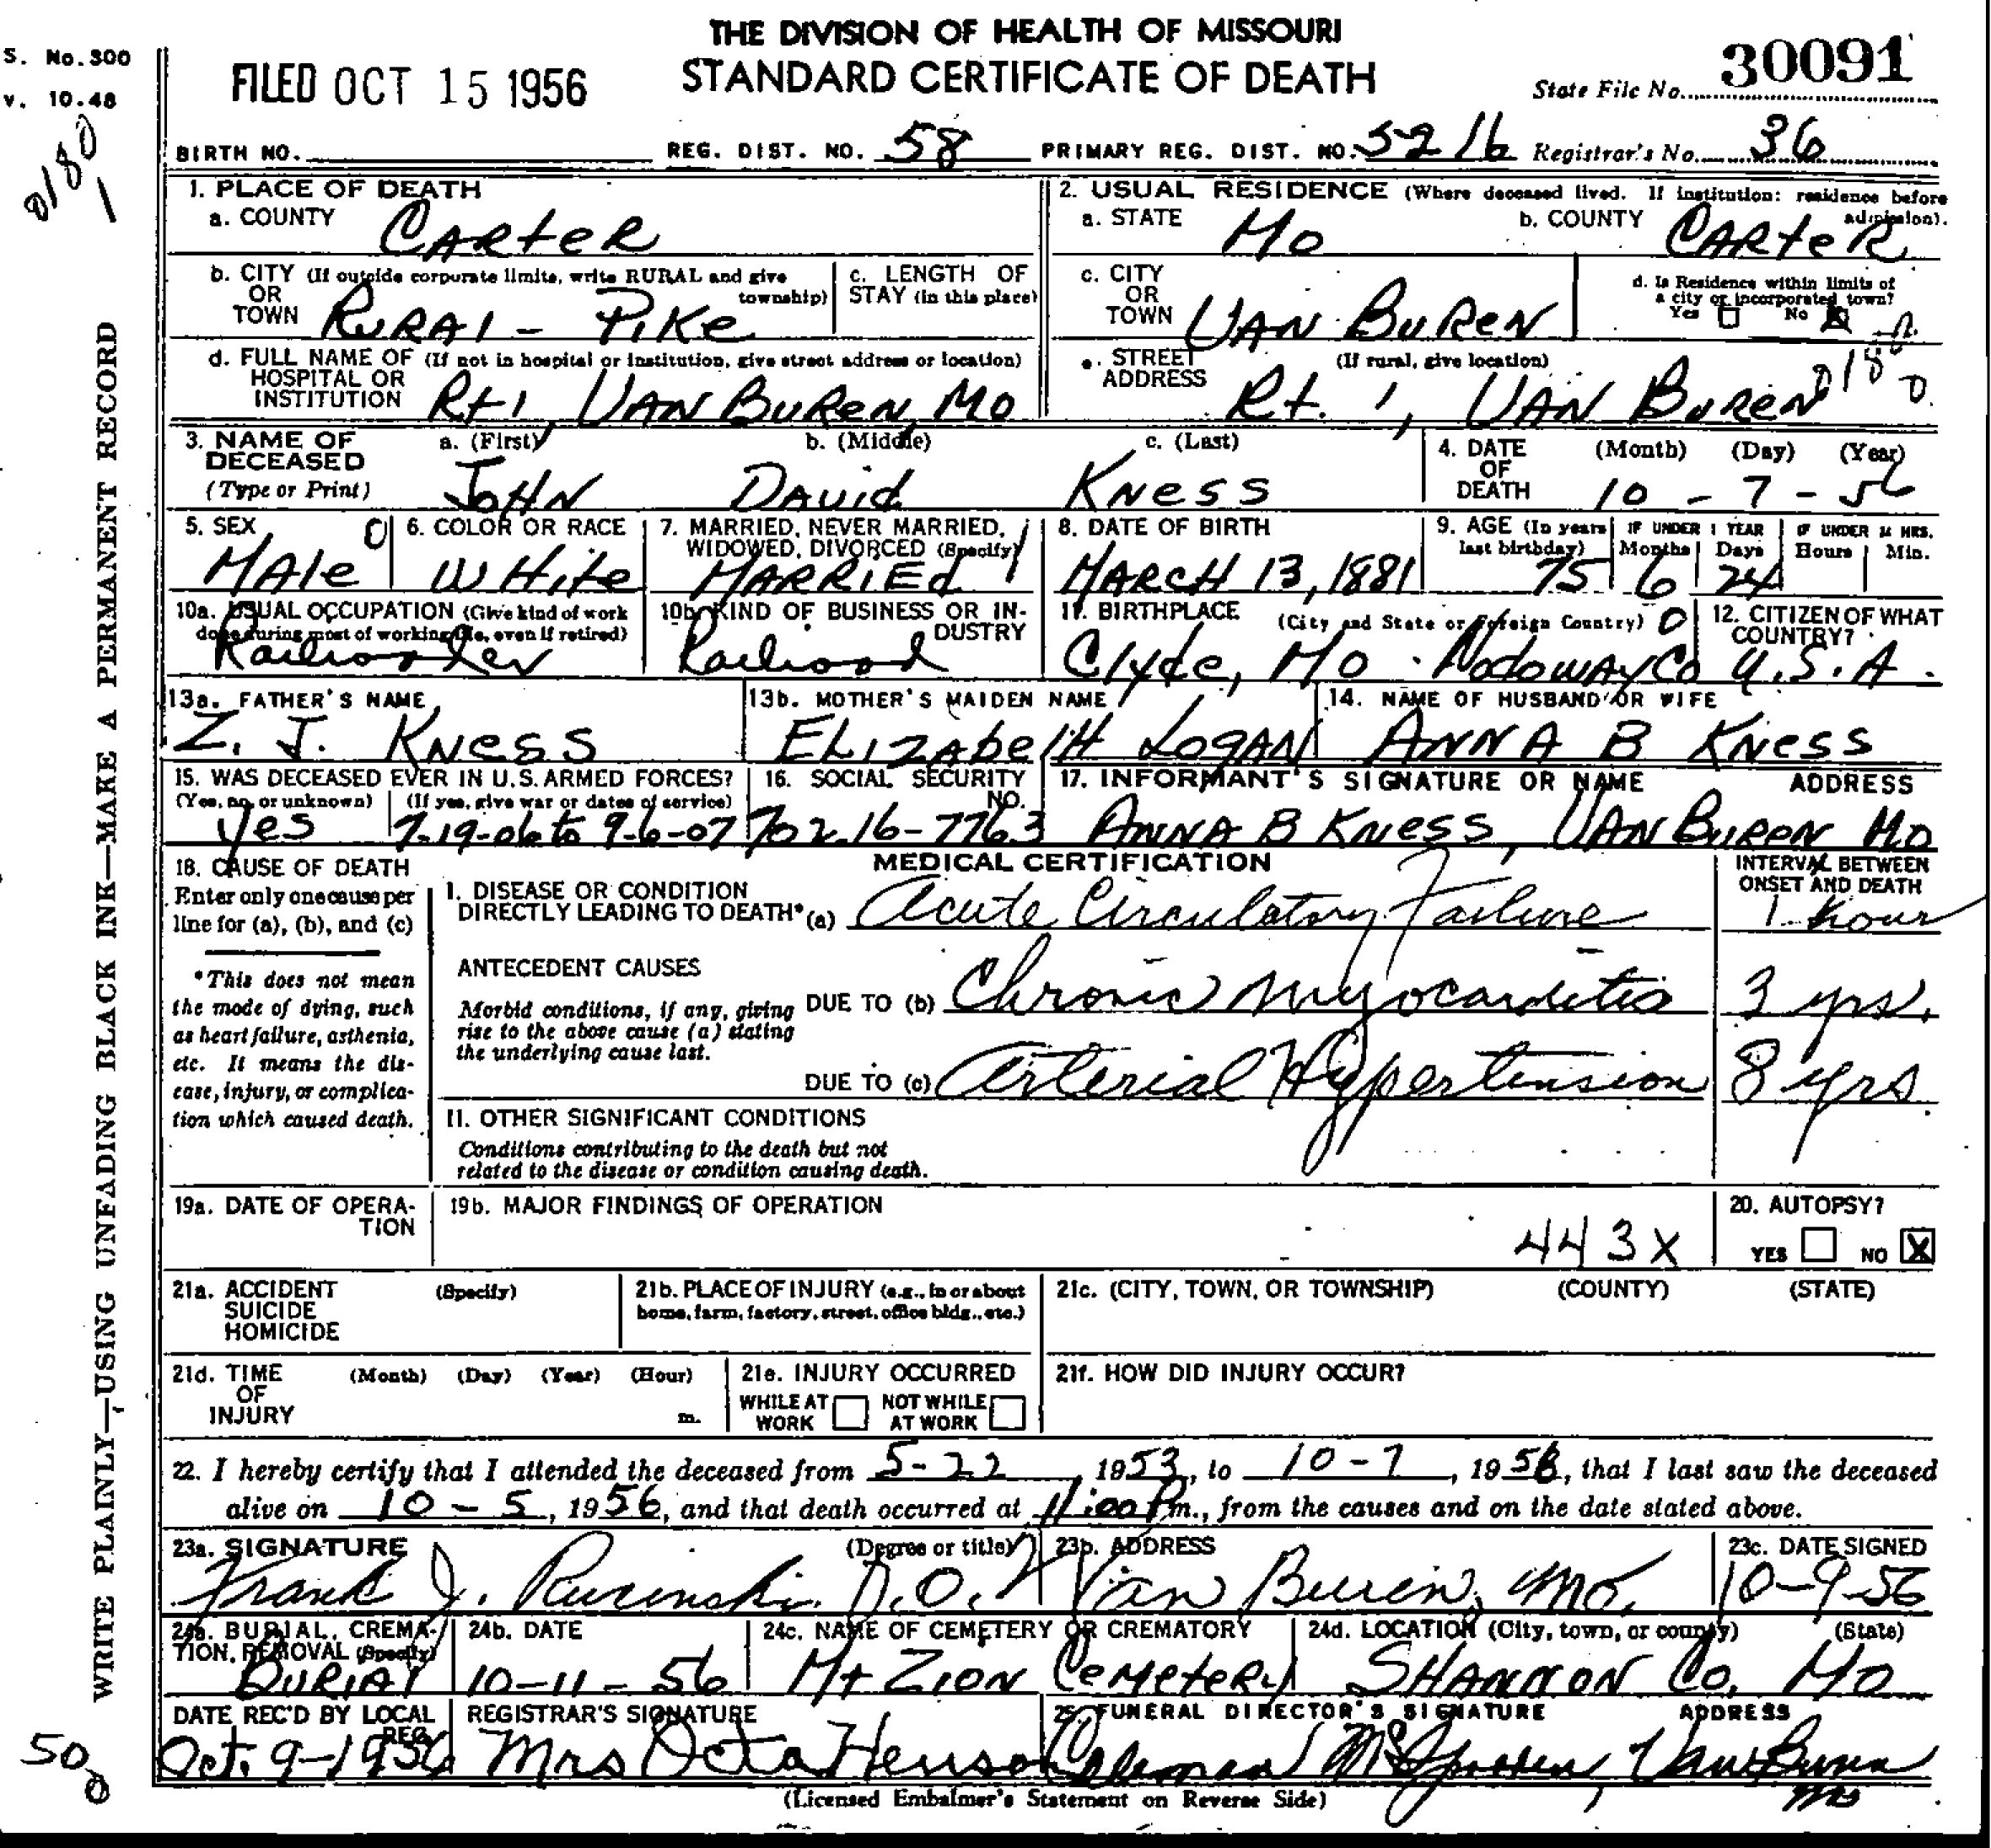 THE DIVISION OF HEALTH OF MISSOURI
STANDARD CERTIFICATE OF DEATH
S. No. 300
v. 10-48
FILED OCT 15 1956
State File No. 30091
0180
1
BIRTH NO. REG. DIST. NO. 58 PRIMARY REG. DIST. NO. 5216 Registrar's No. 36
1. PLACE OF DEATH
a. COUNTY CARTER
2. USUAL RESIDENCE (Where deceased lived. If institution: residence before admission).
a. STATE MO b. COUNTY CARTER
b. CITY (If outside corporate limits, write RURAL and give township)
OR
TOWN RURAl - PIKE
c. LENGTH OF STAY (in this place)
c. CITY
OR
TOWN VAN BUREN
d. Is Residence within limits of a city or incorporated town?
Yes No X
d. FULL NAME OF (If not in hospital or institution, give street address or location)
HOSPITAL OR
INSTITUTION Rt 1, VAN BUREN, MO
e. STREET (If rural, give location)
ADDRESS Rt. 1, VAN BUREN
0180
3. NAME OF DECEASED
(Type or Print)
a. (First) JOHN b. (Middle) DAVID c. (Last) KNESS
4. DATE OF DEATH (Month) (Day) (Year)
10 - 7 - 56
5. SEX 0
MAle
6. COLOR OR RACE
WHite
7. MARRIED, NEVER MARRIED, WIDOWED, DIVORCED (Specify) 1
MARRIEd
8. DATE OF BIRTH
MARCH 13, 1881
9. AGE (In years last birthday) 75
IF UNDER 1 YEAR Months 6 Days 24
IF UNDER 24 HRS. Hours Min.
10a. USUAL OCCUPATION (Give kind of work done during most of working life, even if retired)
Railroader
10b. KIND OF BUSINESS OR INDUSTRY
Railroad
11. BIRTHPLACE (City and State or Foreign Country) 0
Clyde, MO. Nodoway Co
12. CITIZEN OF WHAT COUNTRY?
U.S.A.
13a. FATHER'S NAME
Z. J. KNESS
13b. MOTHER'S MAIDEN NAME
ELIZAbeTH LOGAN
14. NAME OF HUSBAND OR WIFE
ANNA B KNESS
15. WAS DECEASED EVER IN U.S. ARMED FORCES?
(Yes, no, or unknown) (If yes, give war or dates of service)
yes 7-19-06 to 9-6-07
16. SOCIAL SECURITY NO.
702-16-7763
17. INFORMANT'S SIGNATURE OR NAME ADDRESS
ANNA B KNESS, VAN BUREN MO
18. CAUSE OF DEATH
Enter only one cause per line for (a), (b), and (c)
*This does not mean the mode of dying, such as heart failure, asthenia, etc. It means the disease, injury, or complication which caused death.
MEDICAL CERTIFICATION
INTERVAL BETWEEN ONSET AND DEATH
I. DISEASE OR CONDITION
DIRECTLY LEADING TO DEATH* (a) Acute Circulatory Failure 1 hour
ANTECEDENT CAUSES
Morbid conditions, if any, giving rise to the above cause (a) stating the underlying cause last.
DUE TO (b) Chronic Myocarditis 3 yrs.
DUE TO (c) Arterial Hypertension 8 yrs.
II. OTHER SIGNIFICANT CONDITIONS
Conditions contributing to the death but not related to the disease or condition causing death.
19a. DATE OF OPERATION
19b. MAJOR FINDINGS OF OPERATION
443X
20. AUTOPSY?
YES NO X
21a. ACCIDENT (Specify)
SUICIDE
HOMICIDE
21b. PLACE OF INJURY (e.g., in or about home, farm, factory, street, office bldg., etc.)
21c. (CITY, TOWN, OR TOWNSHIP) (COUNTY) (STATE)
21d. TIME OF INJURY (Month) (Day) (Year) (Hour) m.
21e. INJURY OCCURRED
WHILE AT WORK NOT WHILE AT WORK
21f. HOW DID INJURY OCCUR?
22. I hereby certify that I attended the deceased from 5-22, 1953, to 10-7, 1956, that I last saw the deceased
alive on 10-5, 1956, and that death occurred at 11:00 P.m., from the causes and on the date stated above.
23a. SIGNATURE (Degree or title)
Frank J. D.O.
23b. ADDRESS
Van Buren, Mo.
23c. DATE SIGNED
10-9-56
24a. BURIAL, CREMATION, REMOVAL (Specify)
BURIAl
24b. DATE
10-11-56
24c. NAME OF CEMETERY OR CREMATORY
Mt ZION CEMETERY
24d. LOCATION (City, town, or county) (State)
SHANNON Co. MO
DATE REC'D BY LOCAL REG.
Oct. 9-1956
REGISTRAR'S SIGNATURE
Mrs Octa Henson
25. FUNERAL DIRECTOR'S SIGNATURE ADDRESS
Coleman Van Buren Mo
(Licensed Embalmer's Statement on Reverse Side)
WRITE PLAINLY—USING UNFADING BLACK INK—MAKE A PERMANENT RECORD
50
0